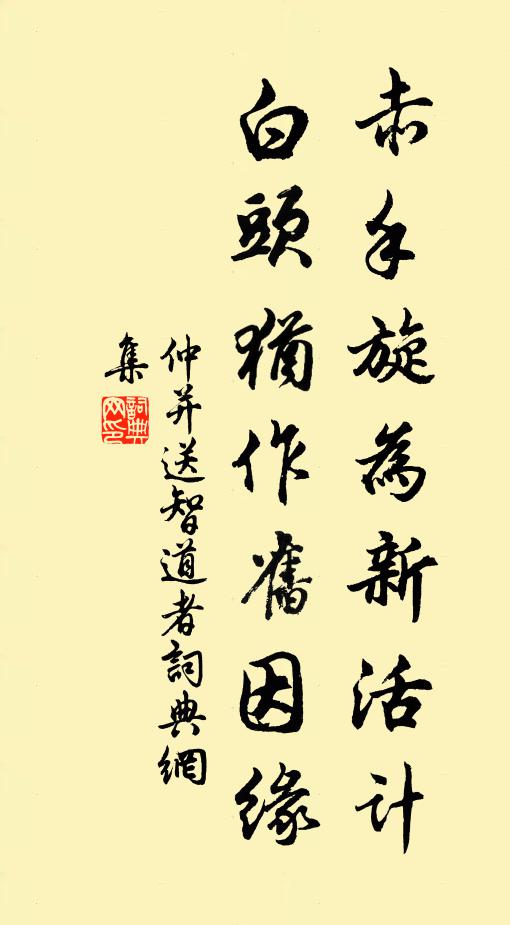 赤手旋為新活計
白頭猶作舊因緣
仲并送智道者詞典網
集
詞典網印